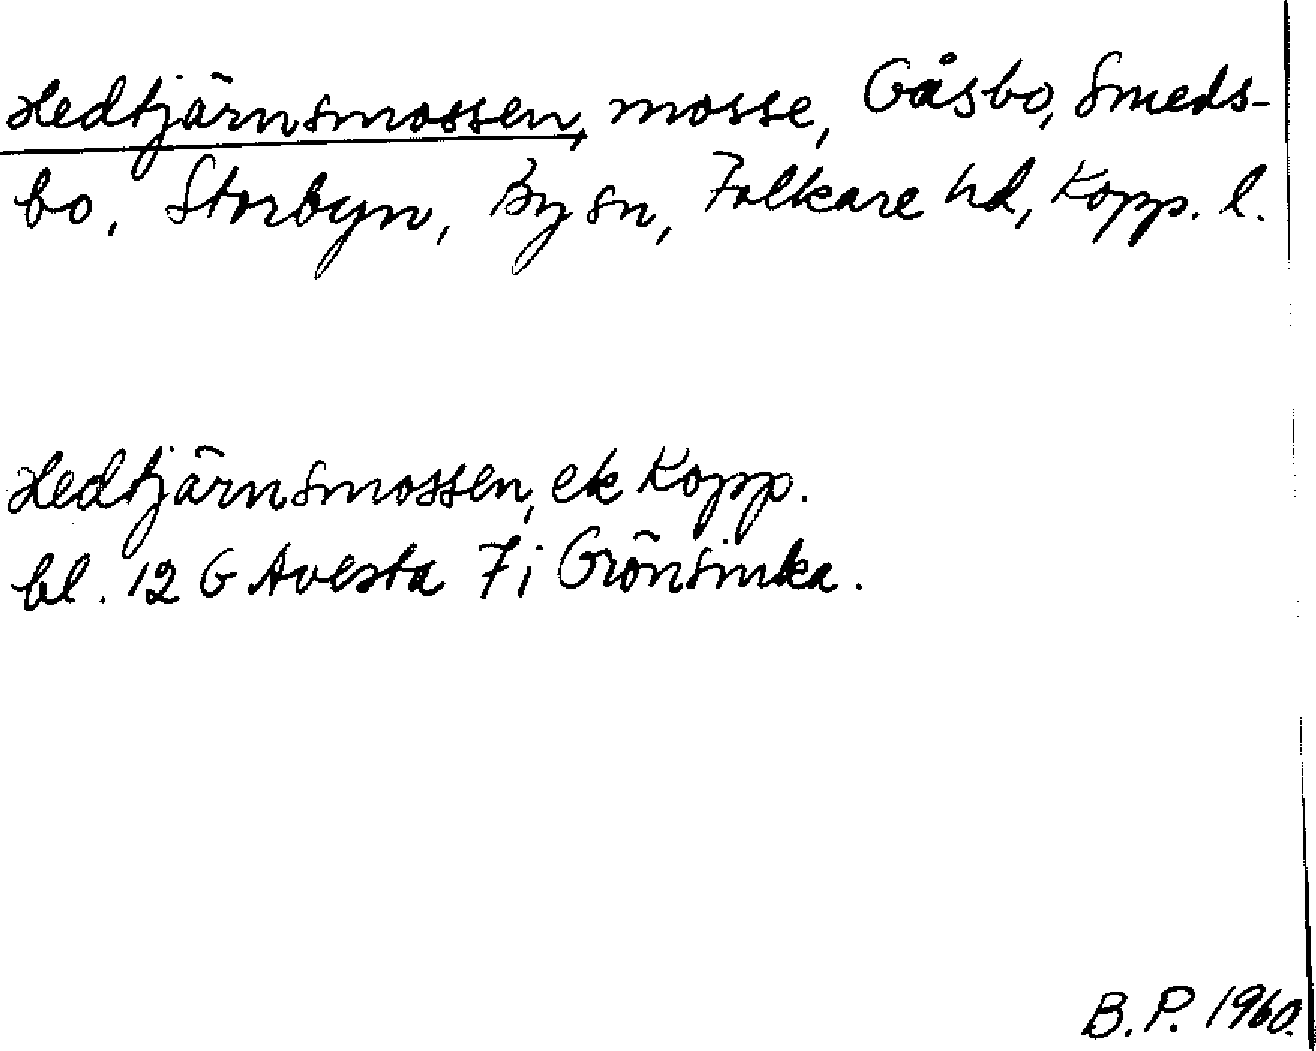 Hedtjärnsmossen, mosse, Gåsbo, Smeds-
bo, Storbyn, By sn, Folkare hd, Kopp. l.
Hedtjärnsmossen, ek Kopp.
bl. 12 G Avesta 7 i Grönsinka.
B. P. 1960.